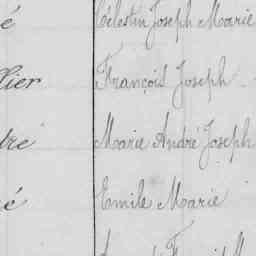 é Célestin Joseph Marie
llier François Joseph
dré Marie André Joseph
é Emile Marie